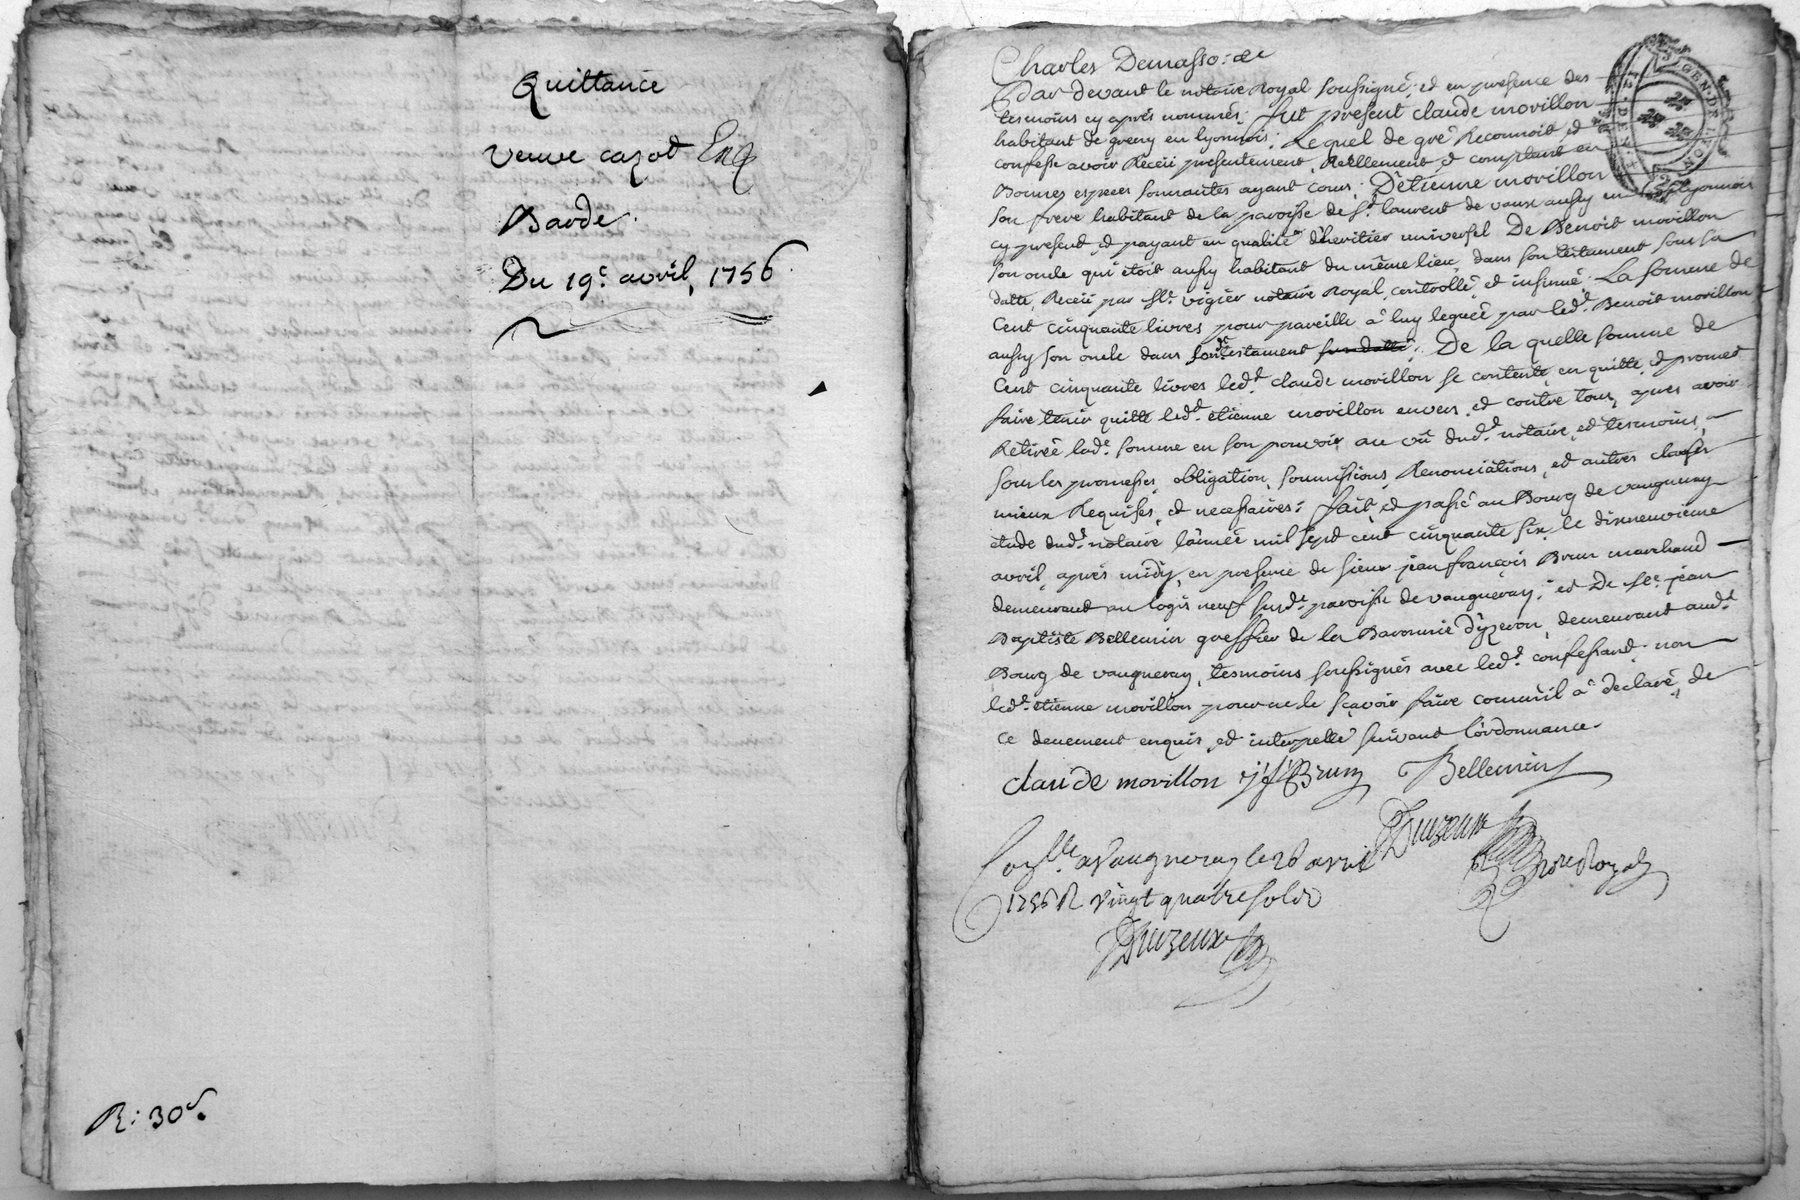 Quittance
veuve cazot
Barde.
Du 19e. avril, 1756
R: 30s.
Charles Demasso: de
Pardevant le notaire Royal soussigné, et en presence des
tesmoins cy après nommés: fut present claude morillon
habitant de greny en lyonnois; Lequel de gré Reconnoit et
confesse avoir Receü presentement, Reellement et comptant en
Bonnes especes sonnantes ayant cours; D'etienne morillon
son frere habitant de la paroisse de St. laurent de vaux aussy en lyonnois
cy present et payant en qualité d'heritier universel De Benoit morillon
son oncle qui etoit aussy habitant du même lieu, dans son testament sous sa
datte, Receü par Me. vigier notaire Royal, controllé, et insinué; La somme de
Cent cinquante livres pour pareille à luy leguée par led.t Benoit morillon
aussy son oncle dans sond.t testament sus datté; De la quelle somme de
Cent cinquante livres led.t claude morillon se contente, en quitte, et promet
faire tenir quitte led.t etienne morillon envers, et contre tous, apres avoir
Retirée lad.e somme en son pouvoir au vû dud.t notaire, et tesmoins,
sous les promesses, obligation, soumissions, Renonciations, et autres clauses
mieux Requises, et necessaires; fait et passé au Bourg de vaugneray
etude dud.t notaire l'année mil sept cent cinquante six le dixneuvieme
avril, après midy, en presence de sieur jean françois Brun marchand
demeurant au logis neuf susd.e paroisse de vaugneray; et De Sr. jean
Baptiste Bellemin greffier de la Baronnie d'yzeron, demeurant aud.t
Bourg de vaugneray, tesmoins soussignés avec led.t confessant; non
led.t etienne morillon pour ne le sçavoir faire comm'il a declaré, de
ce deuement enquis, et interpellé suivant l'ordonnance.
claude morillon jf Brun Bellemin
Duzeux
nore Royal
Con.lle a Vaugneray le 26 avril
1756 R vingt quatre sols
Duzeux